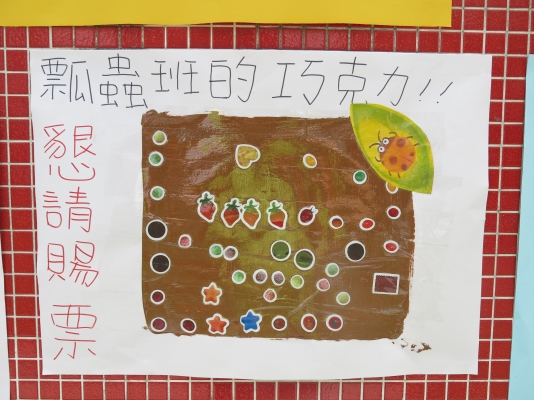 瓢蟲班的巧克力!!
懇請賜票